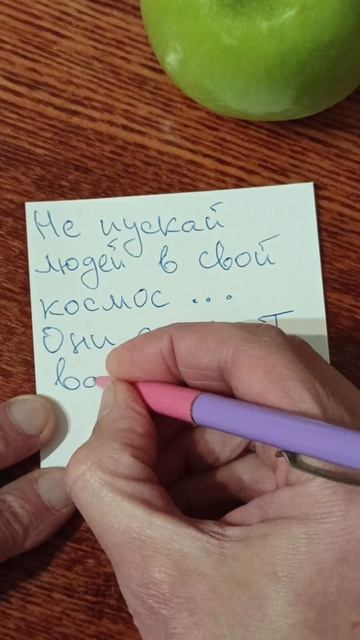 Не пускай
людей в свой
космос ...
Они